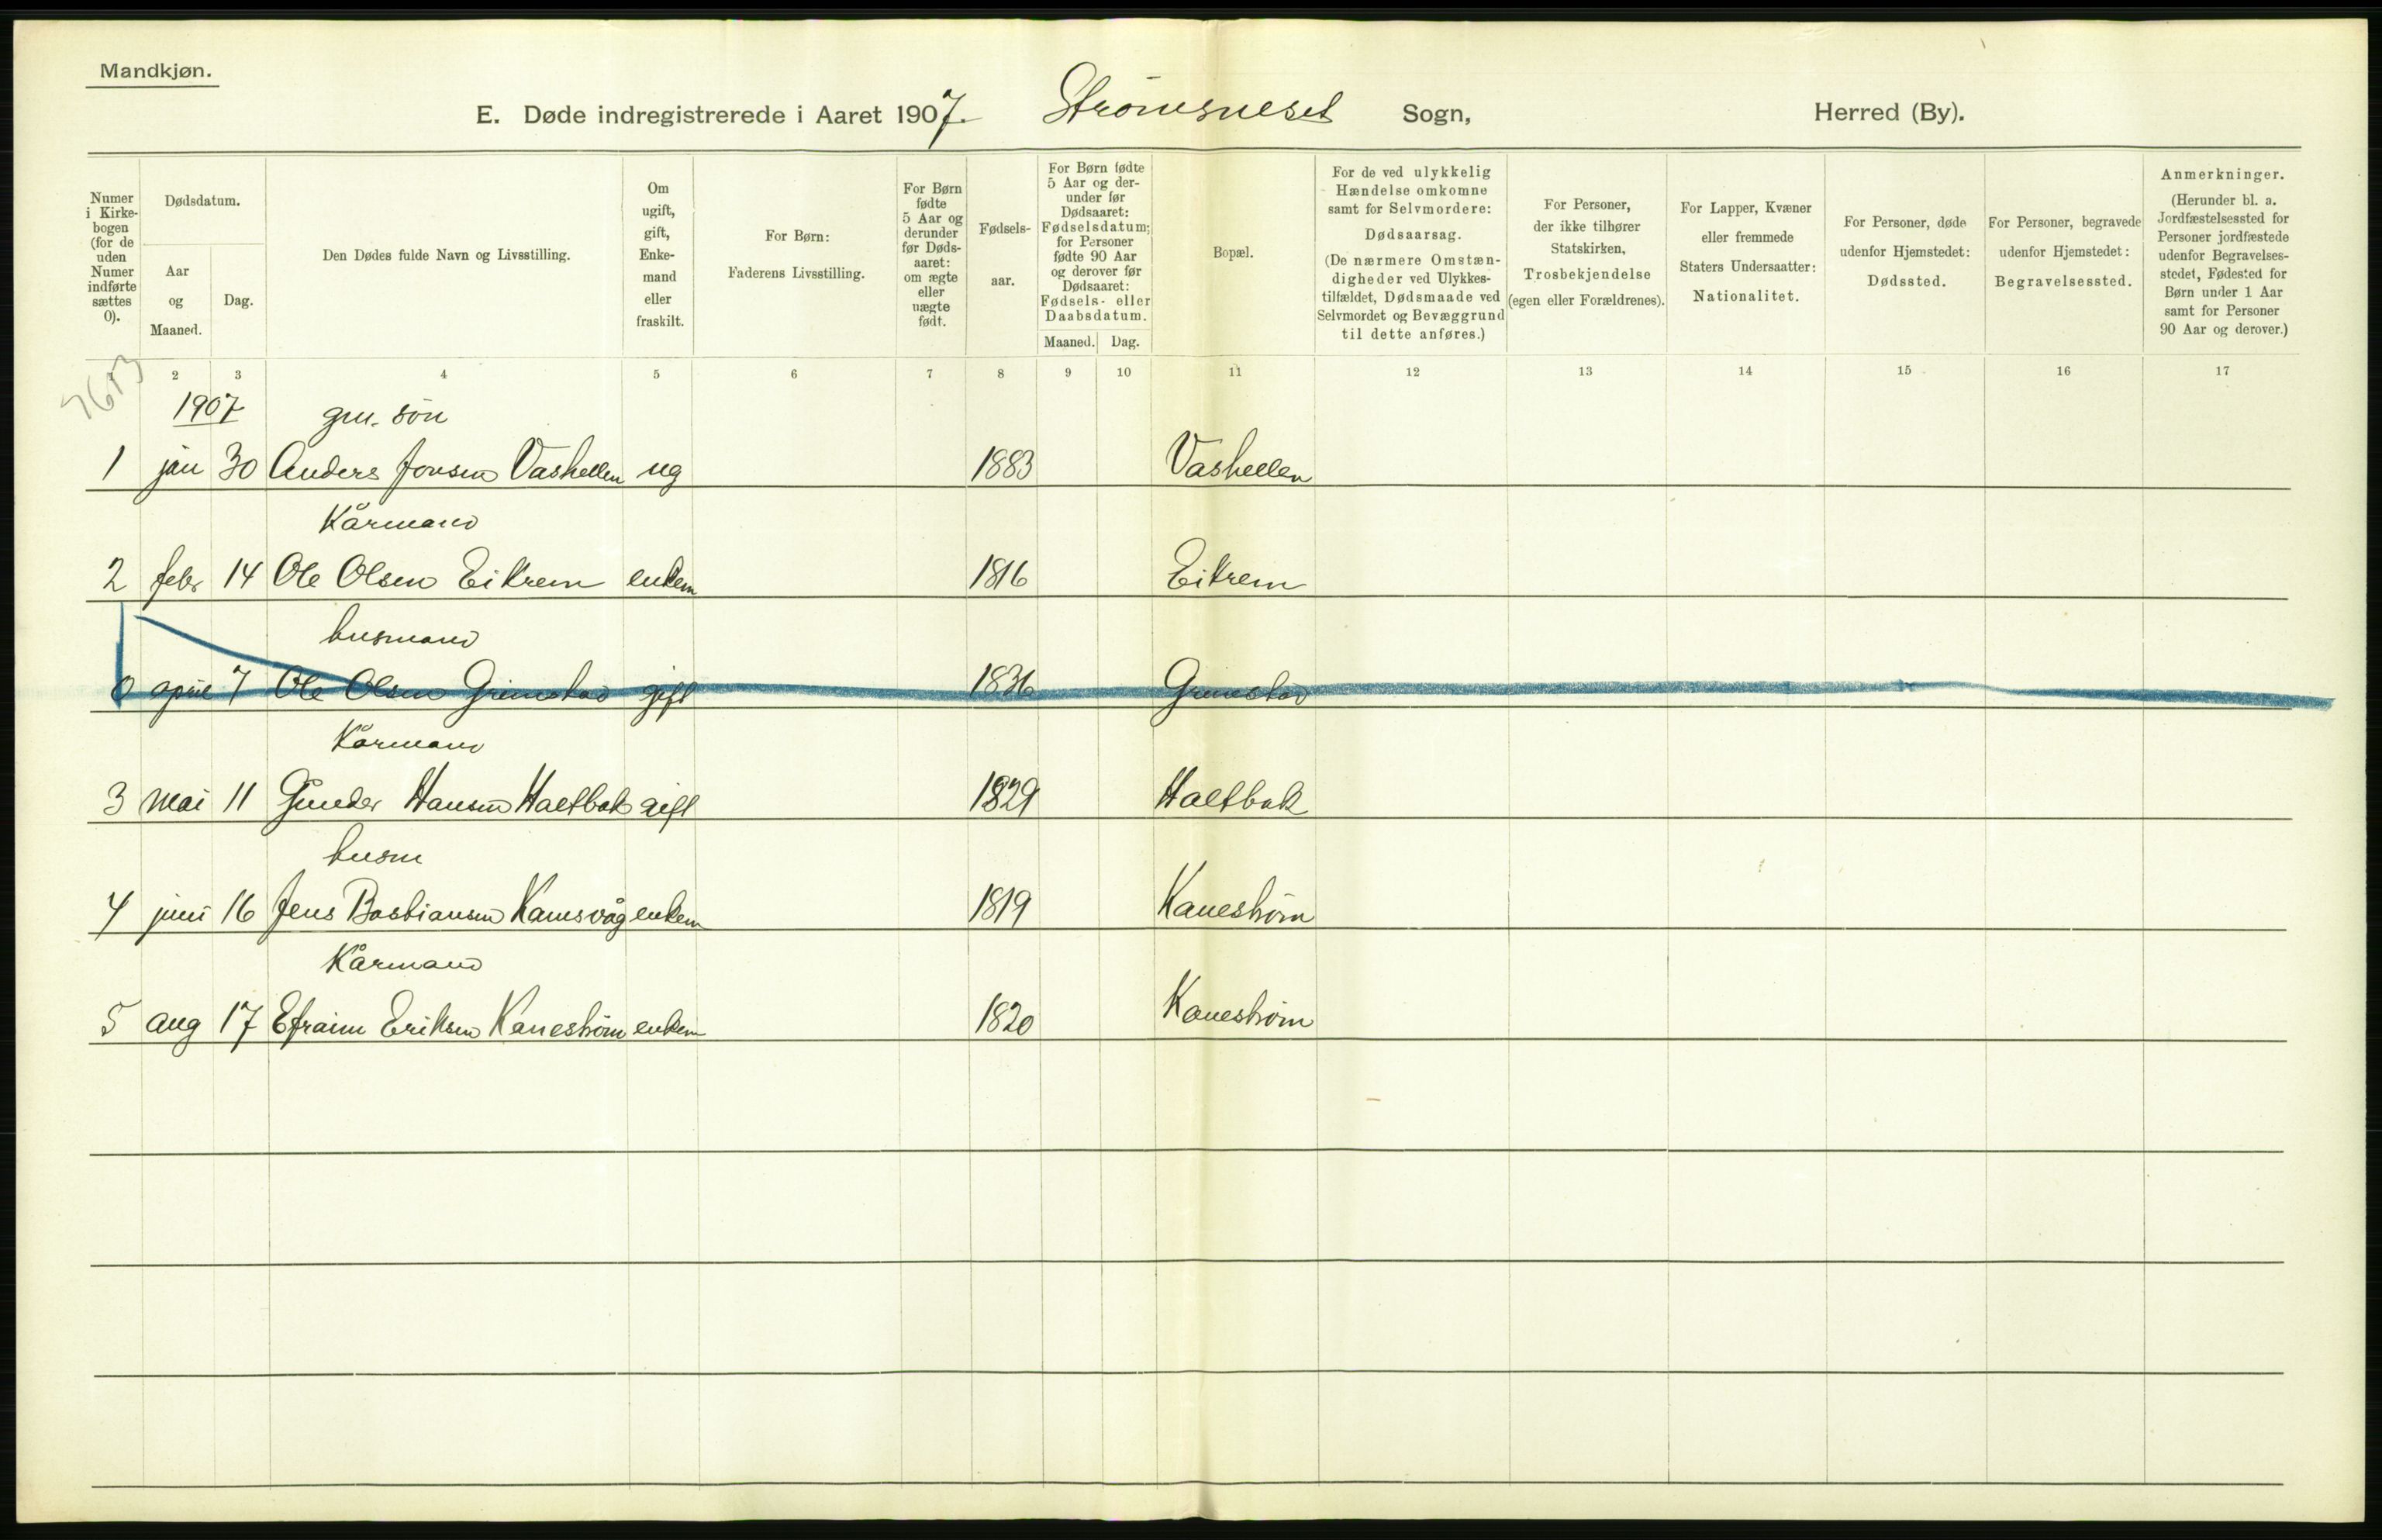 Mandkjøn.
E. Døde indregistrerede i Aaret 1907. Strömsneset Sogn, Herred (By).
Numer i Kirke-bogen (for de uden Numer indførte sættes 0).
Dødsdatum.
Aar og Maaned.
Dag.
Den Dødes fulde Navn og Livsstilling.
Om ugift, gift, Enke-mand eller fraskilt.
For Børn: Faderens Livsstilling.
For Børn fødte 5 Aar og derunder før Døds-aaret: om ægte eller uægte født.
Fødsels-aar.
For Børn fødte 5 Aar og der-under før Dødsaaret: Fødselsdatum; for Personer fødte 90 Aar og derover før Dødsaaret: Fødsels- eller Daabsdatum.
Maaned. Dag.
Bopæl.
For de ved ulykkelig Hændelse omkomne samt for Selvmordere: Dødsaarsag. (De nærmere Omstæn-digheder ved Ulykkes-tilfældet, Dødsmaade ved Selvmordet og Bevæggrund til dette anføres.)
For Personer, der ikke tilhører Statskirken, Trosbekjendelse (egen eller Forældrenes).
For Lapper, Kvæner eller fremmede Staters Undersaatter: Nationalitet.
For Personer, døde udenfor Hjemstedet: Dødssted.
For Personer, begravede udenfor Hjemstedet: Begravelsessted.
Anmerkninger. (Herunder bl. a. Jordfæstelsessted for Personer jordfæstede udenfor Begravelses-stedet, Fødested for Børn under 1 Aar samt for Personer 90 Aar og derover.)
1 2 3 4 5 6 7 8 9 10 11 12 13 14 15 16 17
1907 gm. sön
1 jan 30 Anders Jonsen Vashellen ug 1883 Vashellen
Kårmand
2 febr 14 Ole Olsen Eikrem enkem 1816 Eikrem
husmand
0 april 7 Ole Olsen Grimstad gift 1836 Grimstad
Kårmand
3 mai 11 Gunder Hansen Haltbak gift 1829 Haltbak
husm
4 juni 16 Jens Bastiansen Kamsvåg enkem 1819 Kaneström
Kårmand
5 aug 17 Efraim Eriksen Kaneström enkem 1820 Kaneström